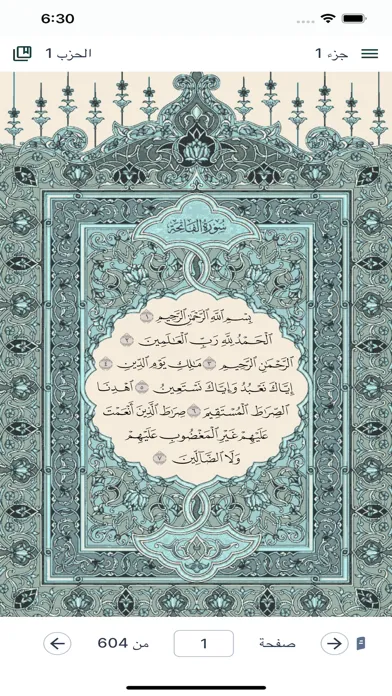 6:30
جزء 1 الحزب 1
سُورَةُ الْفَاتِحَةِ
بِسْمِ اللَّهِ الرَّحْمَٰنِ الرَّحِيمِ ١
الْحَمْدُ لِلَّهِ رَبِّ الْعَالَمِينَ ٢
الرَّحْمَٰنِ الرَّحِيمِ ٣ مَالِكِ يَوْمِ الدِّينِ ٤
إِيَّاكَ نَعْبُدُ وَإِيَّاكَ نَسْتَعِينُ ٥ اهْدِنَا
الصِّرَاطَ الْمُسْتَقِيمَ ٦ صِرَاطَ الَّذِينَ أَنْعَمْتَ
عَلَيْهِمْ غَيْرِ الْمَغْضُوبِ عَلَيْهِمْ
وَلَا الضَّالِّينَ ٧
صفحة 1 من 604